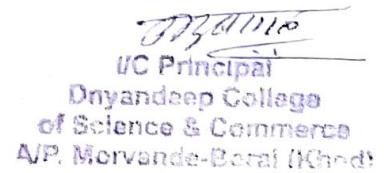 I/C Principal
Dnyandeep College
of Science & Commerce
A/P. Morvande-Boraj (Khed)